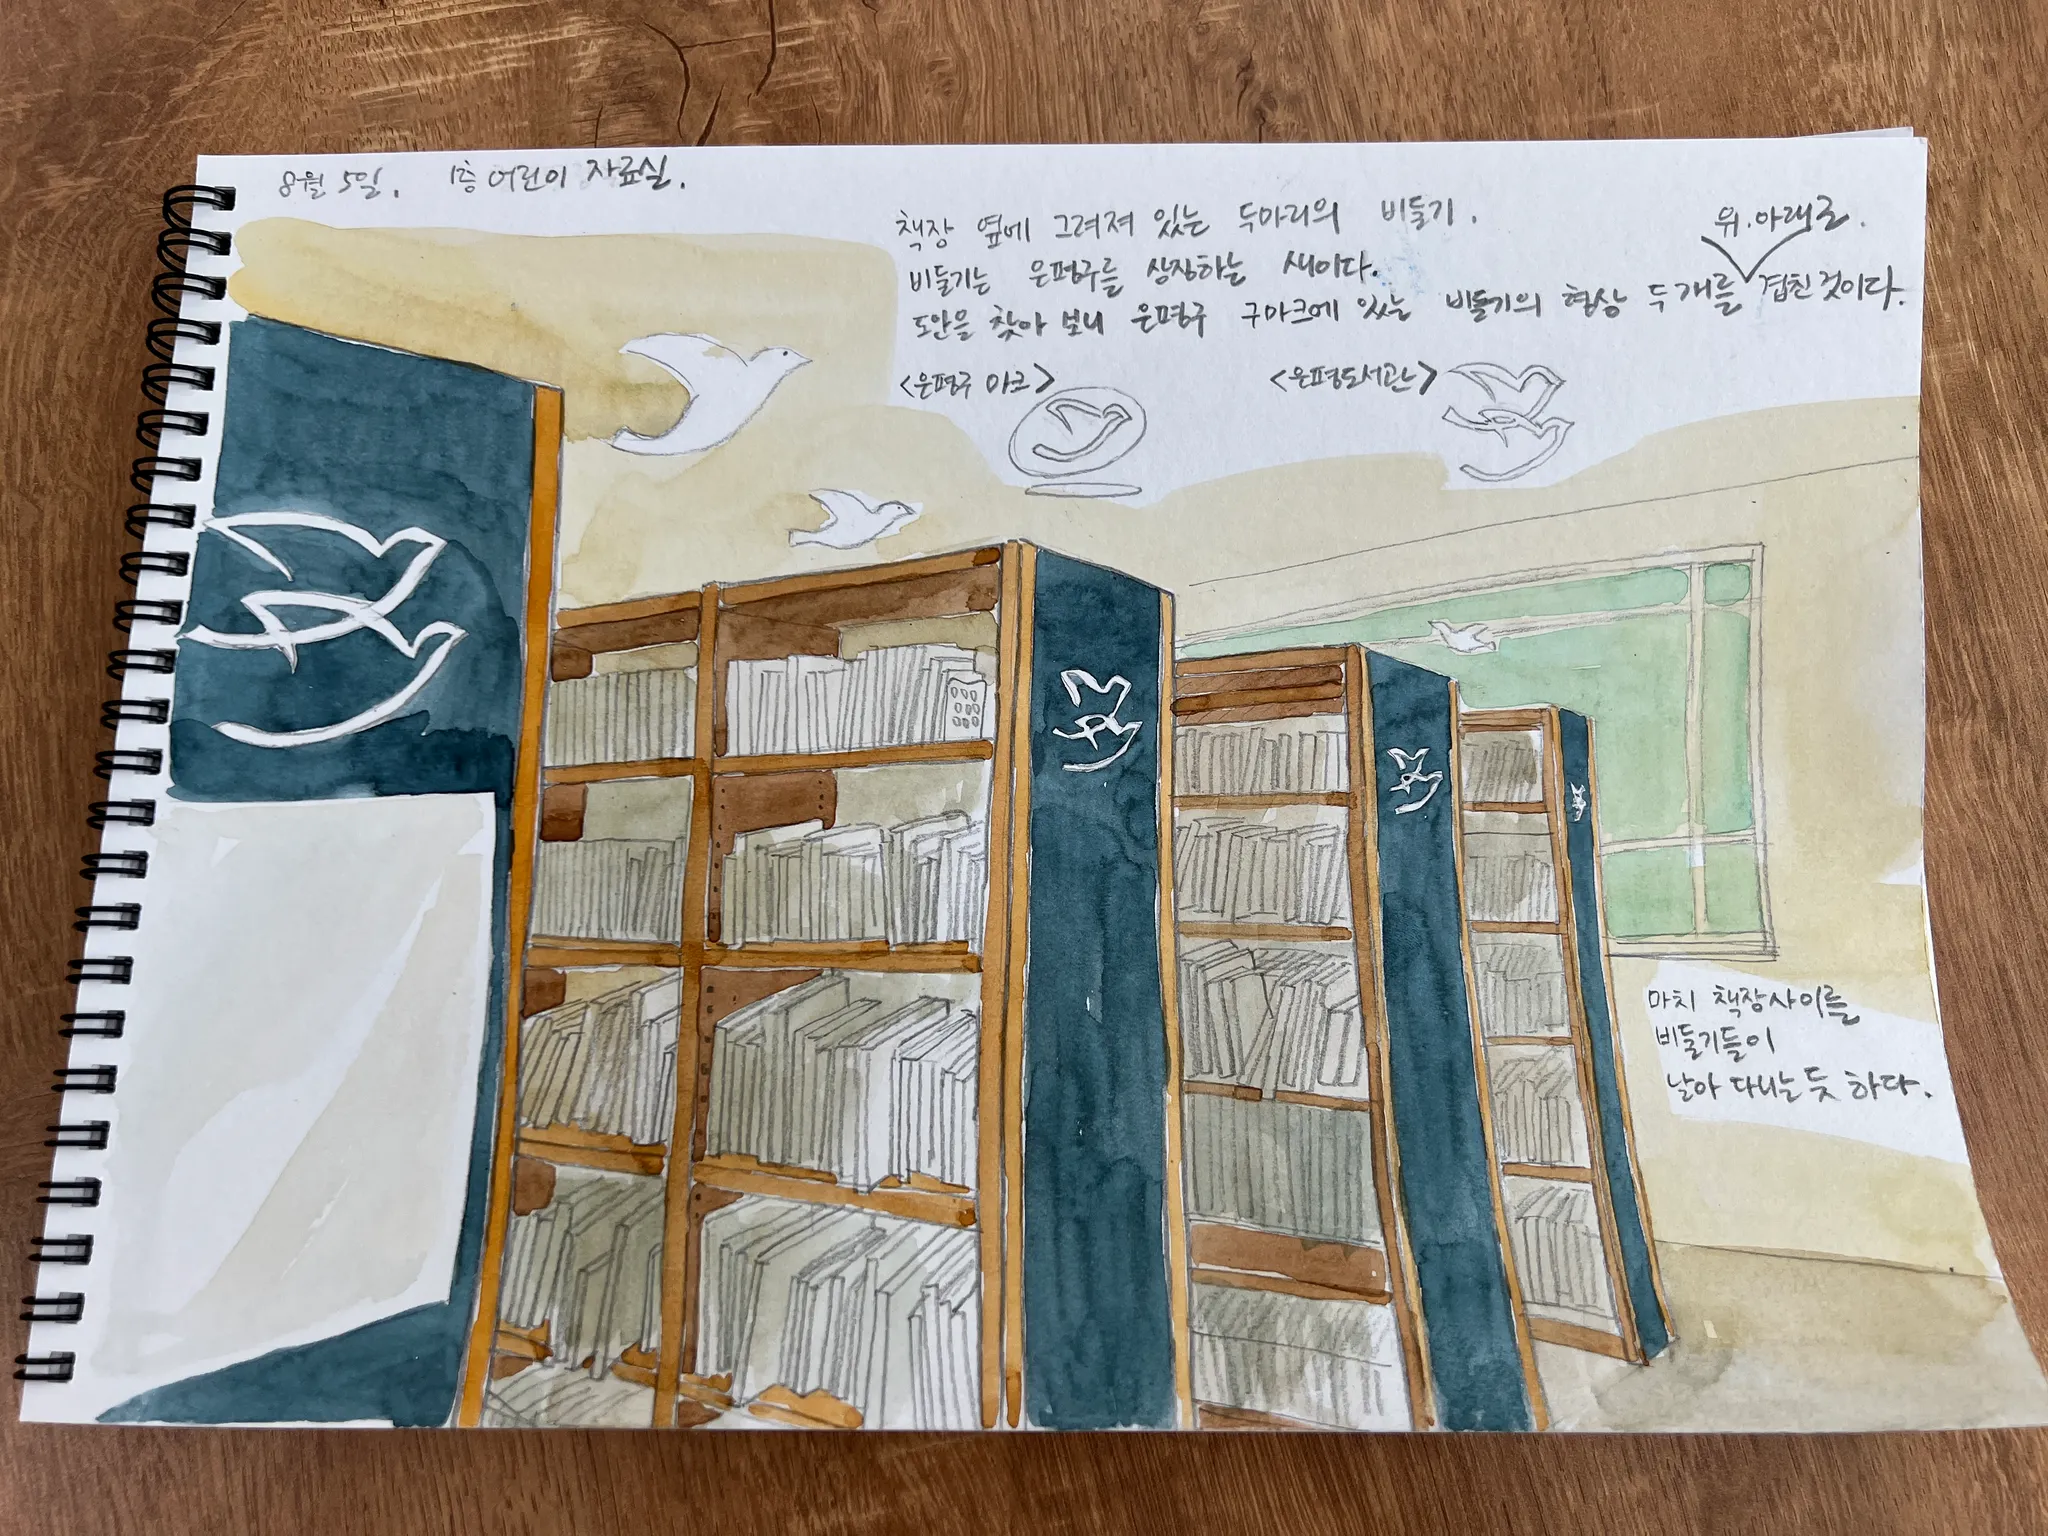 8월 5일. 1층 어린이 자료실.
책장 옆에 그려져 있는 두마리의 비둘기.
비둘기는 은평구를 상징하는 새이다.
위.아래로.
도안을 찾아 보니 은평구 구마크에 있는 비둘기의 형상 두 개를 겹친것이다.
<은평구 마크> <은평도서관>
마치 책장사이를
비둘기들이
날아 다니는 듯 하다.